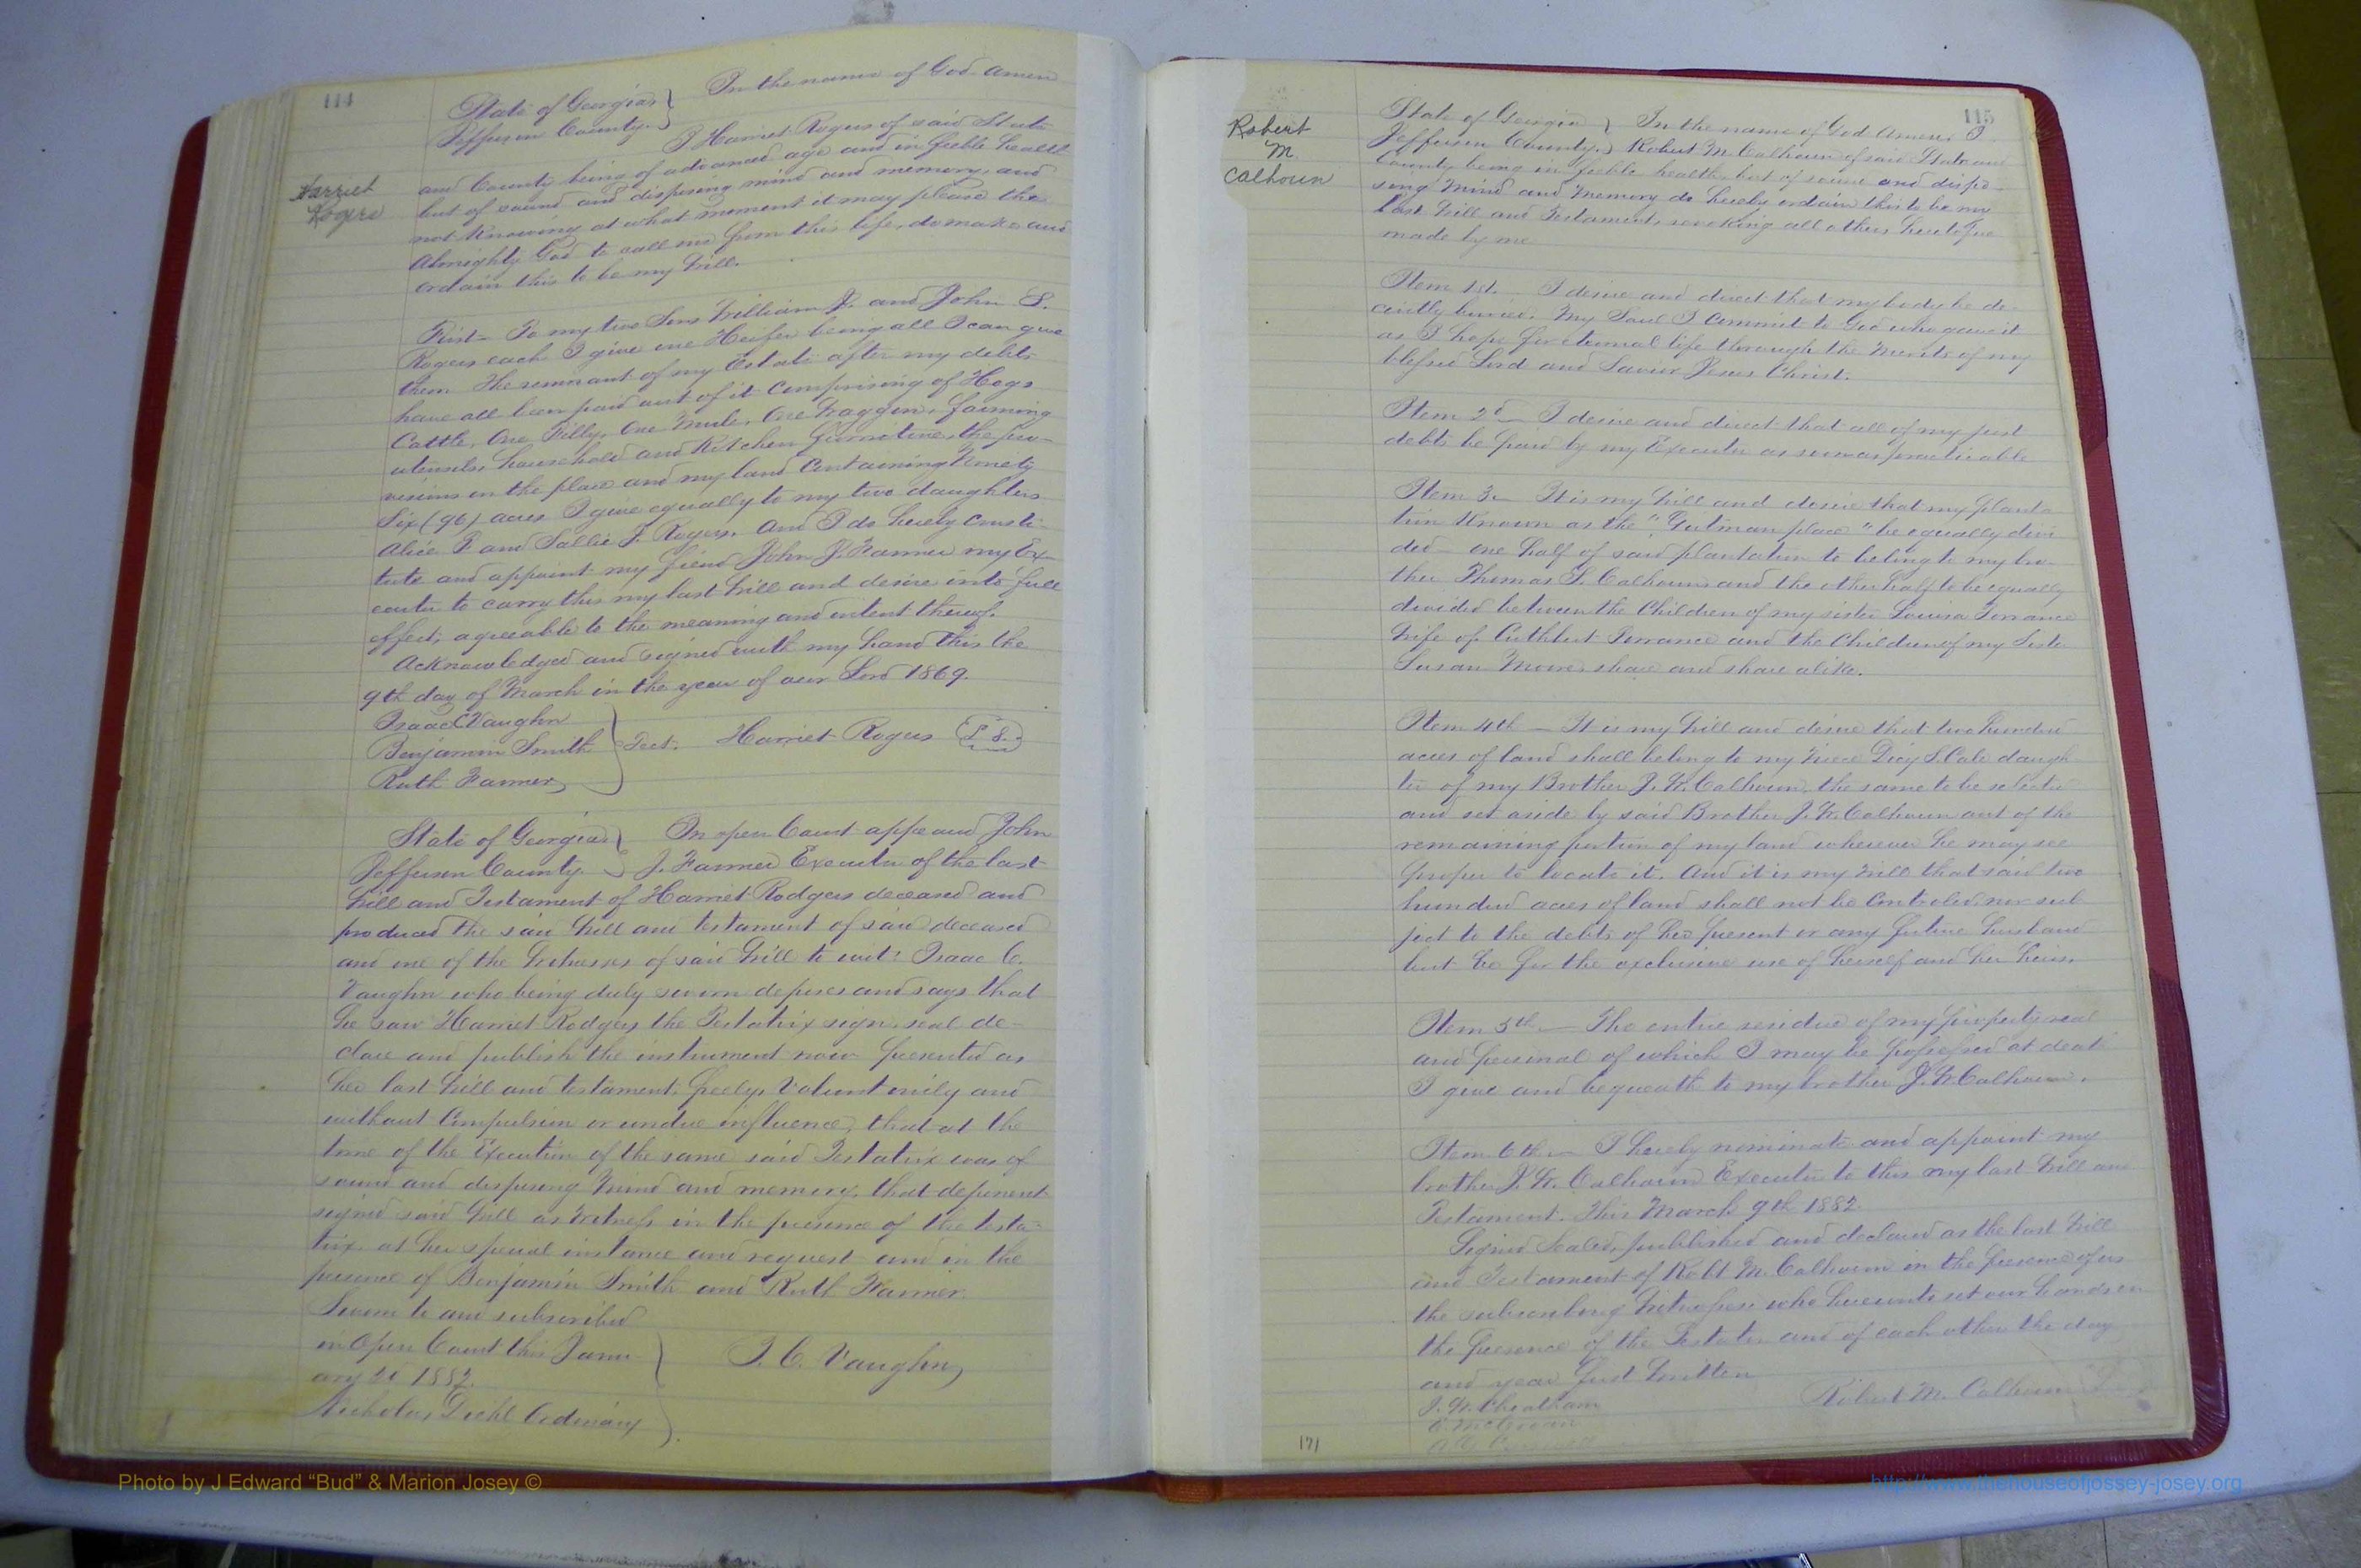 114
Harriet
Rogers
State of Georgia } In the name of God Amen
Jefferson County. } I Harriet Rogers of said State
and County being of advanced age and in feeble health
but of sound and disposing mind and memory, and
not knowing at what moment it may please the
Almighty God to call me from this life, do make and
ordain this to be my Will.
First - To my two Sons William J. and John S.
Rogers each I give one Heifer being all I can give
them The remnant of my Estate after my debts
have all been paid out of it comprising of Hogs
Cattle, One Filly, One Mule, One Waggon, farming
utensils, household and Kitchen furniture, the pro-
visions on the place and my land Containing Ninety
Six (96) acres I give equally to my two daughters
Alice P. and Sallie J. Rogers. And I do hereby consti-
tute and appoint my friend John J. Farmer my Ex-
ecutor to carry this my last Will and desire into full
effect, agreeable to the meaning and intent thereof.
Acknowledged and signed with my hand this the
9th day of March in the year of our Lord 1869.
Isaac C Vaughn
Benjamin Smith } Test. Harriet Rogers (L.S.)
Ruth Farmer
State of Georgia } In open Court appeared John
Jefferson County. } J. Farmer Executor of the last
Will and Testament of Harriet Rodgers deceased and
produced the said Will and testament of said deceased
and one of the Witnesses of said Will to wit: Isaac C.
Vaughn who being duly sworn deposes and says that
he saw Harriet Rodgers the Testatrix sign, seal de-
clare and publish the instrument now presented as
her last Will and testament, freely, Voluntarily and
without Compulsion or undue influence, that at the
time of the Execution of the same said Testatrix was of
sound and disposing Mind and memory, that deponent
signed said Will as Witness in the presence of the testa-
trix at her special instance and request and in the
presence of Benjamin Smith and Ruth Farmer.
Sworn to and subscribed
in Open Court this Janu } I. C. Vaughn
ary 1882.
Nicholas Diehl Ordinary
115
Robert
M.
Calhoun
State of Georgia } In the name of God Amen. I
Jefferson County. } Robert M. Calhoun of said State and
County being in feeble health, but of sound and dispo-
sing Mind and Memory do hereby ordain this to be my
Last Will and Testament, revoking all others heretofore
made by me
Item 1st. - I desire and direct that my body be de-
cently buried. My Soul I commit to God who gave it
as I hope for eternal life through the Merits of my
blessed Lord and Savior Jesus Christ.
Item 2d - I desire and direct that all of my just
debts be paid by my Executor as soon as practicable
Item 3. - It is my Will and desire that my planta
tion Known as the " place" be equally divi
ded - one half of said plantation to belong to my bro
ther Thomas S. Calhoun and the other half to be equally
divided between the Children of my sister Louisa Torrance
Wife of Cuthbert Torrance and the Children of my Sister
Susan Moore, share and share alike.
Item 4th - It is my Will and desire that two hundred
acres of land shall belong to my Niece Dicy S. Cale daugh-
ter of my Brother J. W. Calhoun, the same to be selected
and set aside by said Brother J. W. Calhoun out of the
remaining portion of my land wherever he may see
proper to locate it. And it is my Will that said two
hundred acres of land shall not be Controled, nor sub
ject to the debts of her present or any future husband
but be for the exclusive use of herself and her heirs.
Item 5th. - The entire residue of my property real
and personal of which I may be possessed at death
I give and bequeath to my brother J. W. Calhoun.
Item 6th. - I hereby nominate and appoint my
brother J. W. Calhoun Executor to this my last Will and
Testament. This March 9th 1882.
Signed Sealed, published and declared as the last Will
and Testament of Robt M. Calhoun in the presence of us
the subscribing Witnesses who hereunto set our hands in
the presence of the Testator and of each other the day
and year first Written
J. W. Cheatham Robert M. Calhoun
171
Photo by J Edward "Bud" & Marion Josey ©
http://www.thehouseofjossey-josey.org